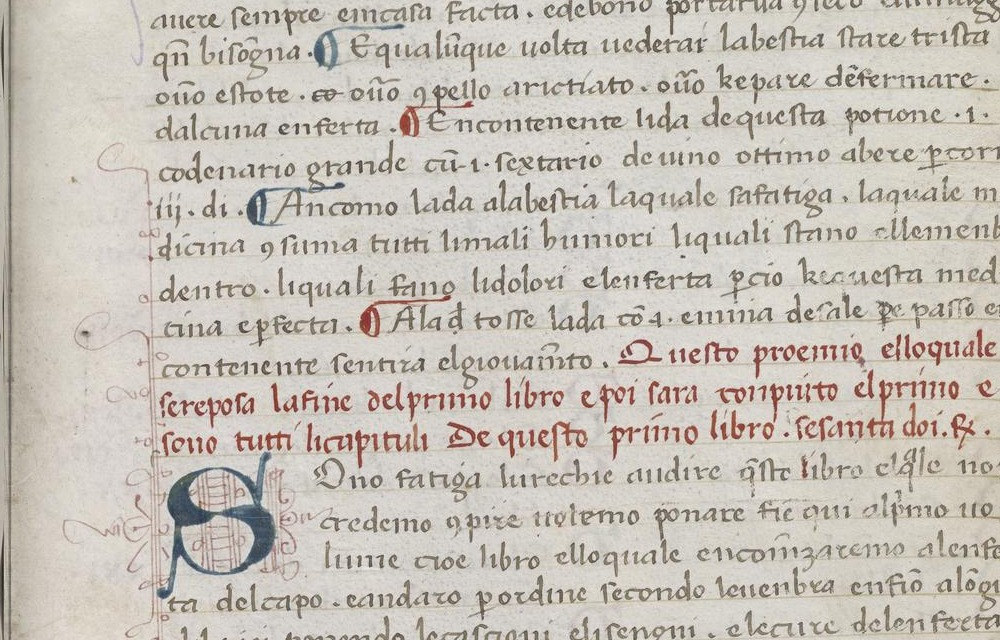 auere sempre emcasa facta . edebono portarua
qn̄ bisōgna . ¶ Equalūque uolta uederai labestia stare trista
ouō estote . ouō ꝯpello arictiato . ouō kepare dēfermare .
dalcuna enferta . ¶ Encontenente lida dequesta potione .i.
codenario grande cū .i. sextario deuino ottimo abere ꝑ
iij . di . ¶ Ancomo lada alabestia laquale safatiga . laquale m
dicina ꝯsuma tutti limali humori liquali stano ellemenb
dentro . liquali fano lidolori elenferta ꝑcio kequesta med
cina eꝑfecta . ¶ Alad tosse lada cō 4 . emina desale passo e
contenente sentira elgiouam̄to . Questo proemio elloquale
sereposa lafine delprimo libro epoi sara conpiuto elprimo e
sono tutti licapituli De questo primo libro . sesanta doi .
Ono fatiga lurechie audire q̄ste libro elq̄le no
credemo ꝯpire uolemo ponare fie qui alp̄mo uo
lume cioe libro elloquale encom̄zaremo alenfe
ta delcapo . eandaro ꝑordine secondo leuenbra enfīo alōg
ponendo lecascioni elisengni . elecure delenferta